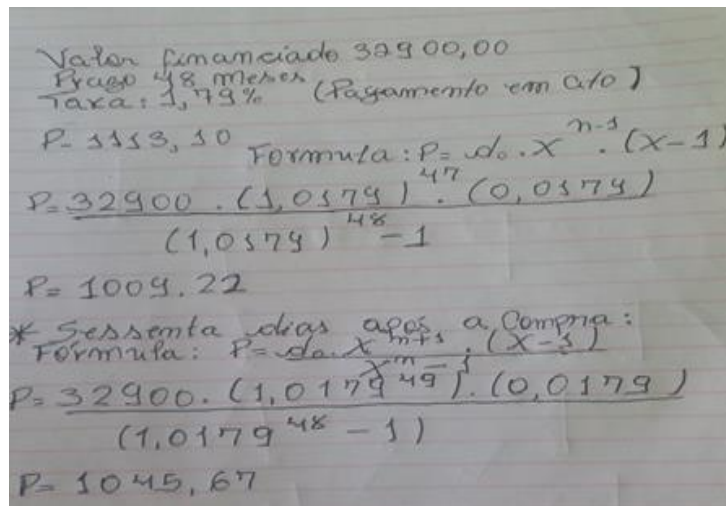 Valor financiado 32900,00
Prazo 48 meses
Taxa: 1,79% (Pagamento em ato)
P= 1113,10
Formula: P= do.X^n-1.(X-1)
P= 32900.(1,0179)^47.(0,0179)
(1,0179)^48-1
P= 1009.22
* Sessenta dias após a Compra:
Fórmula: P= do.X^n+1.(X-1)
X^n-1
P= 32900.(1,0179^49).(0,0179)
(1,0179^48-1)
P= 1045,67